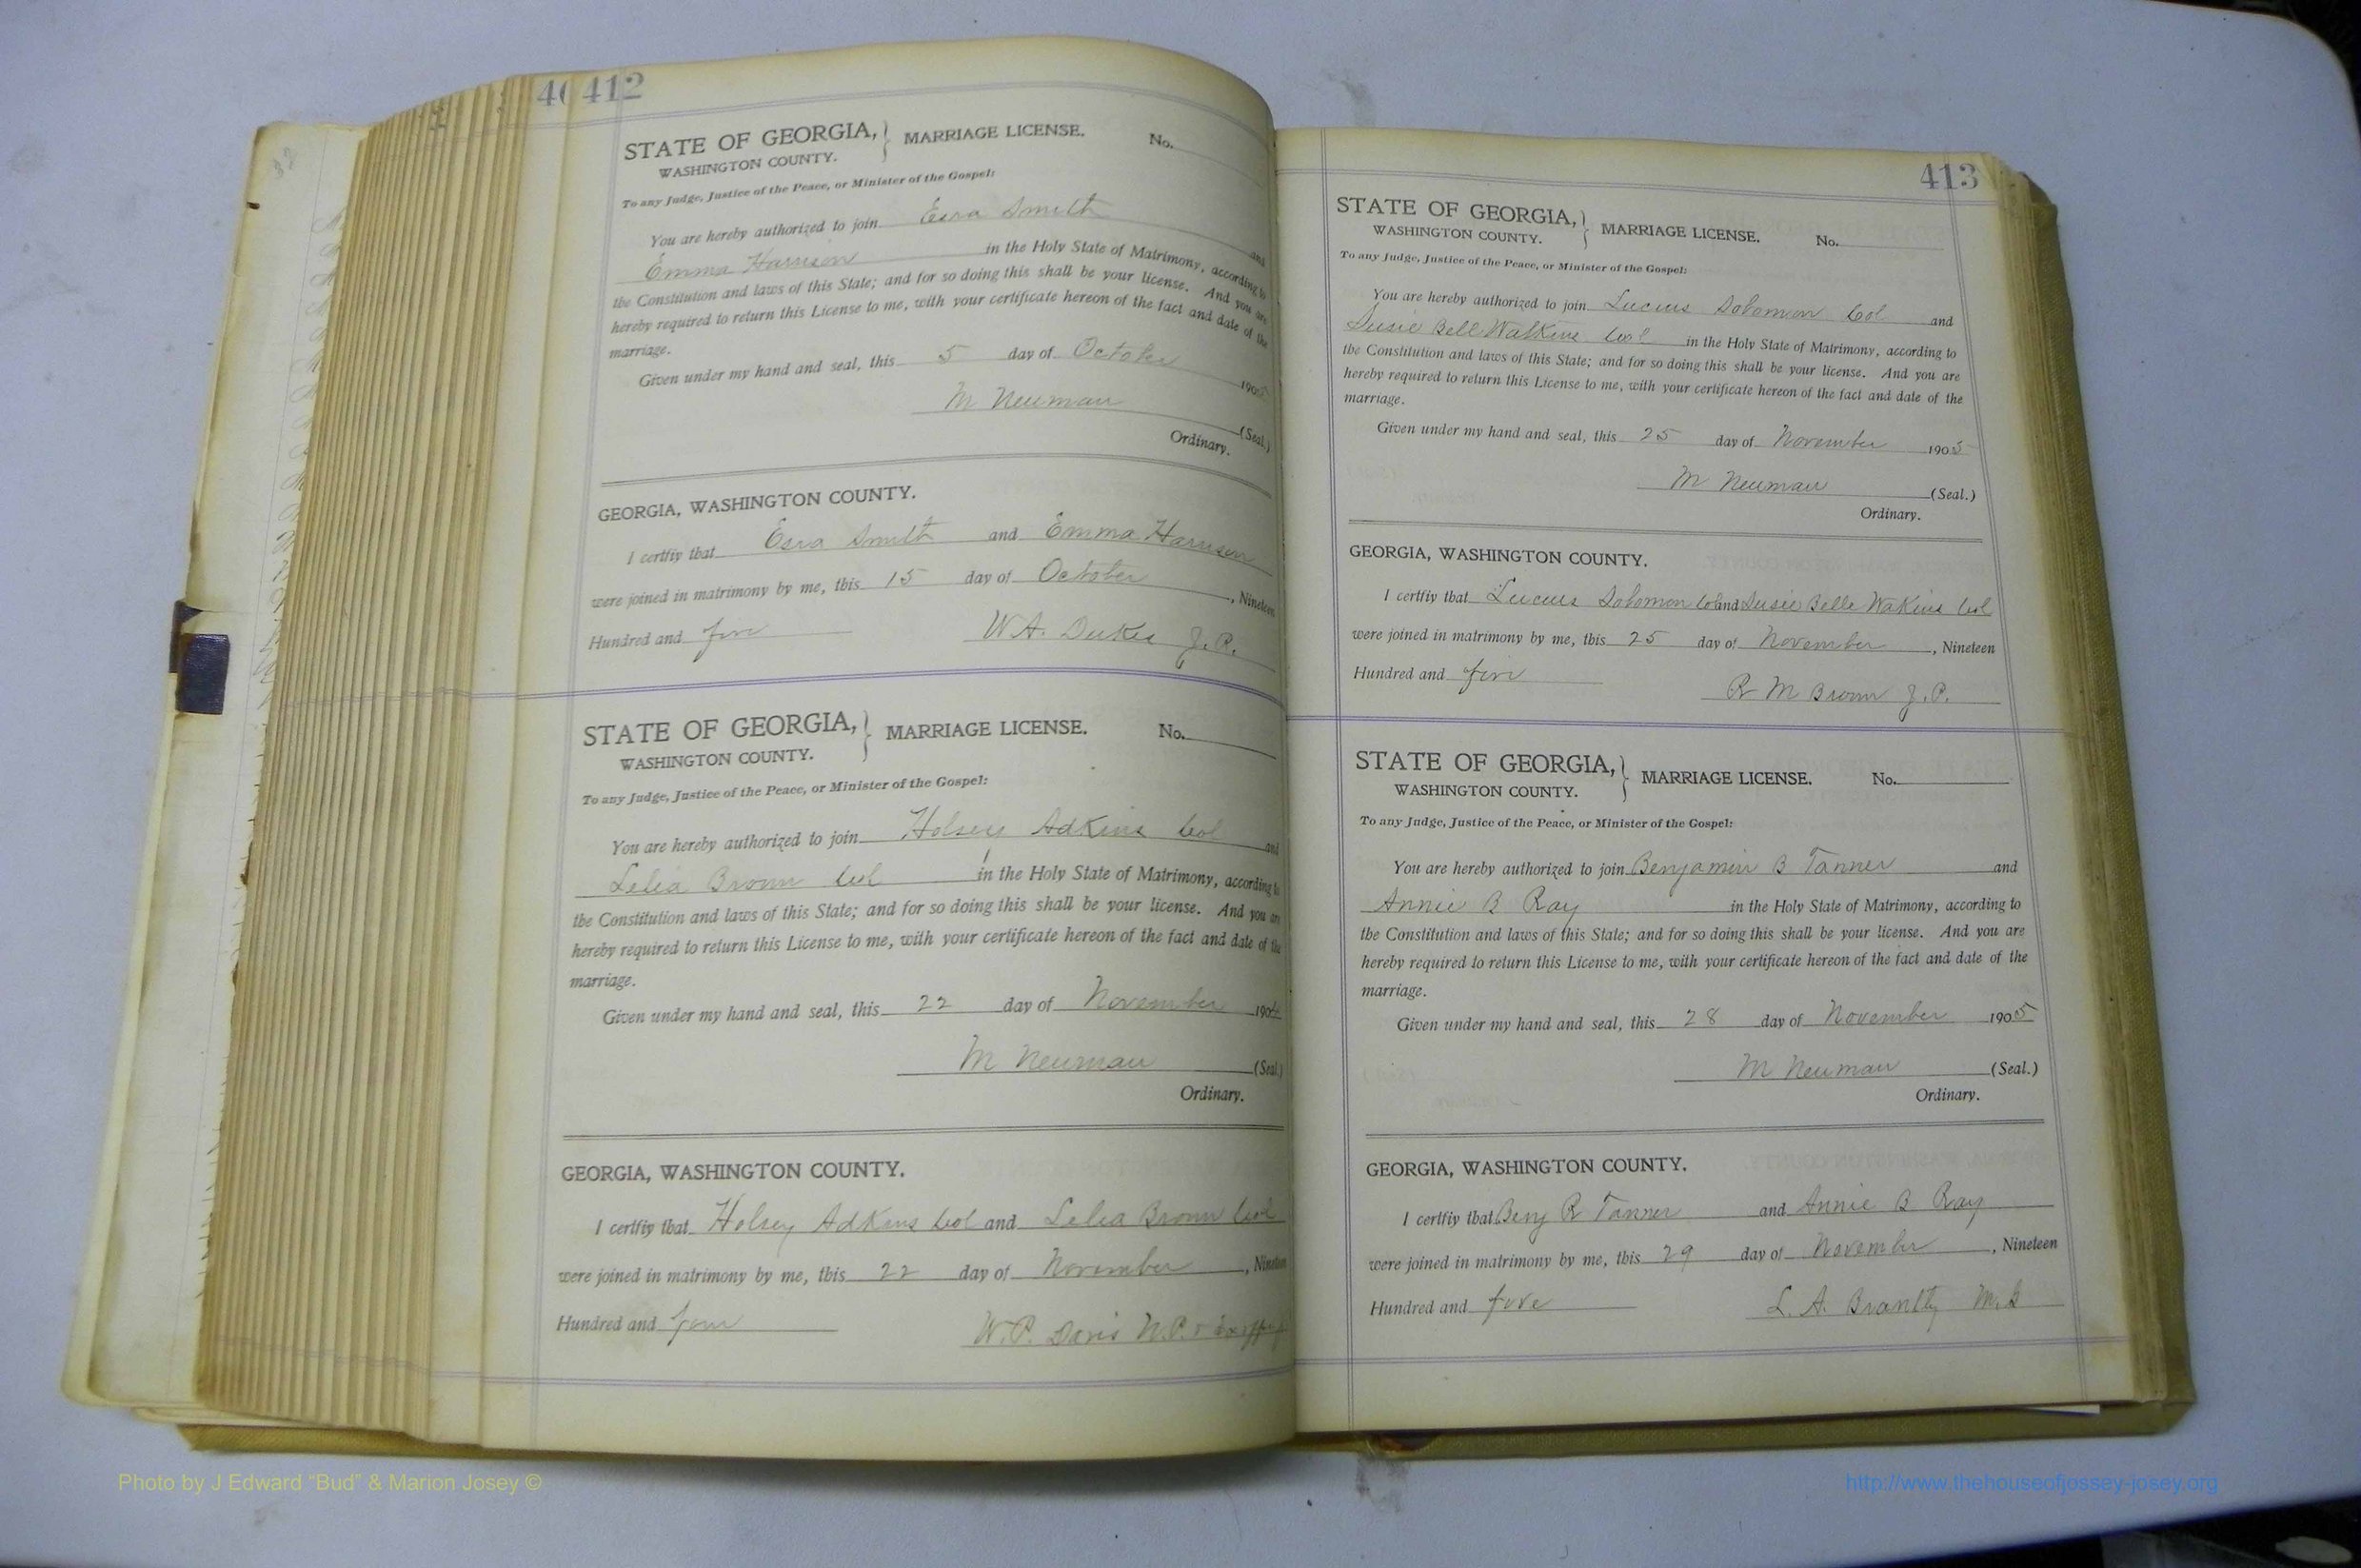 40
412
STATE OF GEORGIA, } MARRIAGE LICENSE. No.
WASHINGTON COUNTY.
To any Judge, Justice of the Peace, or Minister of the Gospel:
You are hereby authorized to join Esra Smith and
Emma Harrison in the Holy State of Matrimony, according to
the Constitution and laws of this State; and for so doing this shall be your license. And you are
hereby required to return this License to me, with your certificate hereon of the fact and date of the
marriage.
Given under my hand and seal, this 5 day of October 1905
M Newman (Seal.)
Ordinary.
GEORGIA, WASHINGTON COUNTY.
I certfiy that Esra Smith and Emma Harrison
were joined in matrimony by me, this 15 day of October, Nineteen
Hundred and five W.A. Dukes J.P.
STATE OF GEORGIA, } MARRIAGE LICENSE. No.
WASHINGTON COUNTY.
To any Judge, Justice of the Peace, or Minister of the Gospel:
You are hereby authorized to join Holsey Adkins Col and
Lelia Brown Col in the Holy State of Matrimony, according to
the Constitution and laws of this State; and for so doing this shall be your license. And you are
hereby required to return this License to me, with your certificate hereon of the fact and date of the
marriage.
Given under my hand and seal, this 22 day of November 1904
M Newman (Seal.)
Ordinary.
GEORGIA, WASHINGTON COUNTY.
I certfiy that Holsey Adkins Col and Lelia Brown Col
were joined in matrimony by me, this 22 day of November, Nineteen
Hundred and four W.P. Davis N.P.
413
STATE OF GEORGIA, } MARRIAGE LICENSE. No.
WASHINGTON COUNTY.
To any Judge, Justice of the Peace, or Minister of the Gospel:
You are hereby authorized to join Lucius Solomon Col and
Susie Bell Watkins Col in the Holy State of Matrimony, according to
the Constitution and laws of this State; and for so doing this shall be your license. And you are
hereby required to return this License to me, with your certificate hereon of the fact and date of the
marriage.
Given under my hand and seal, this 25 day of November 1905
M Newman (Seal.)
Ordinary.
GEORGIA, WASHINGTON COUNTY.
I certfiy that Lucius Solomon Col and Susie Belle Wakins Col
were joined in matrimony by me, this 25 day of November, Nineteen
Hundred and five R M Brown J.P.
STATE OF GEORGIA, } MARRIAGE LICENSE. No.
WASHINGTON COUNTY.
To any Judge, Justice of the Peace, or Minister of the Gospel:
You are hereby authorized to join Benjamin B Tanner and
Annie B Ray in the Holy State of Matrimony, according to
the Constitution and laws of this State; and for so doing this shall be your license. And you are
hereby required to return this License to me, with your certificate hereon of the fact and date of the
marriage.
Given under my hand and seal, this 28 day of November 1905
M Newman (Seal.)
Ordinary.
GEORGIA, WASHINGTON COUNTY.
I certfiy that Benj R Tanner and Annie B Ray
were joined in matrimony by me, this 29 day of November, Nineteen
Hundred and five L. A. Brantly M.G
Photo by J Edward “Bud” & Marion Josey ©
http://www.thehouseofjossey-josey.org